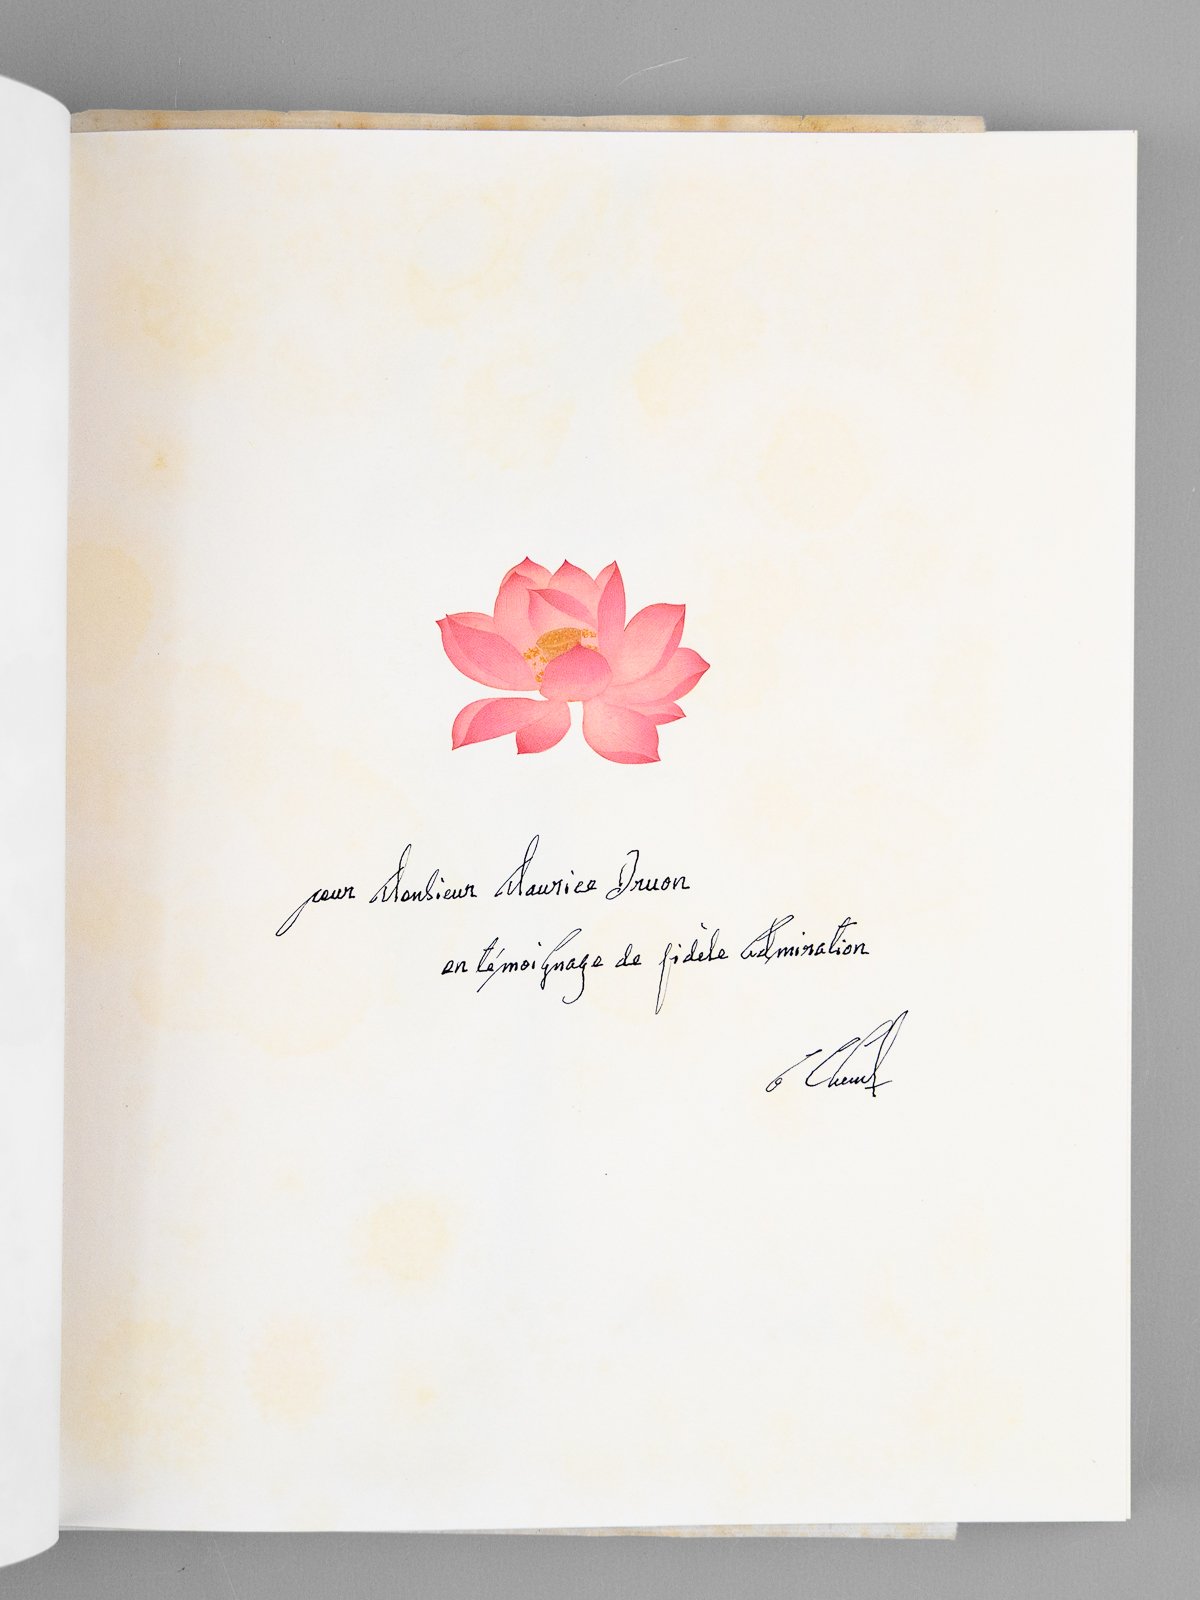 pour Monsieur Maurice Druon
en témoignage de fidèle admiration